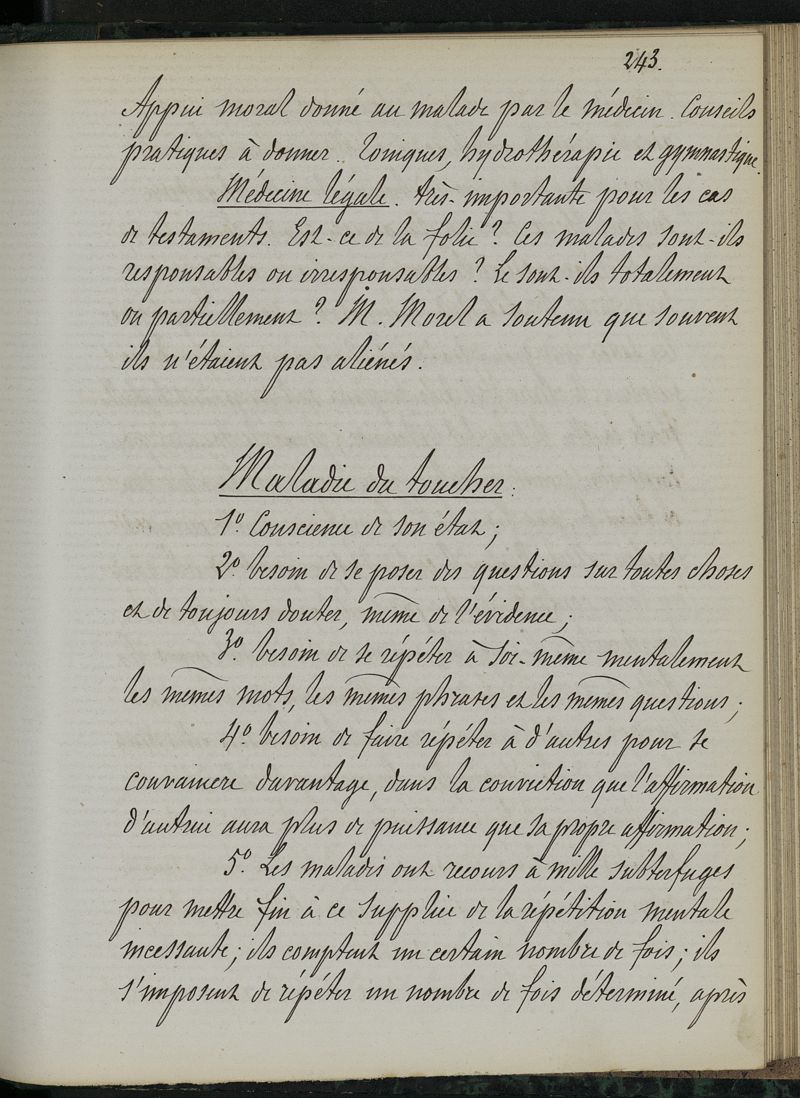 243.
Appui moral donné au malade par le médecin. Conseils
pratiques à donner. Toniques, hydrothérapie et gymnastique.
Médecine légale. très-importante pour les cas
de testaments. Est-ce de la folie? Ces malades sont-ils
responsables ou irresponsables? Le sont-ils totalement
ou partiellement? M. Morel a soutenu que souvent
ils n'étaient pas aliénés.
Maladie du toucher:
1º Conscience de son état;
2º. besoin de se poser des questions sur toutes choses
et de toujours douter, même de l'évidence;
3º. besoin de se répéter à soi-même mentalement
les mêmes mots, les mêmes phrases et les mêmes questions;
4º. besoin de faire répéter à d'autres pour se
convaincre davantage, dans la conviction que l'affirmation
d'autrui aura plus de puissance que sa propre affirmation;
5º. Les malades ont recours à mille subterfuges
pour mettre fin à ce supplice de la répétition mentale
incessante; ils comptent un certain nombre de fois; ils
s'imposent de répéter un nombre de fois déterminé, après